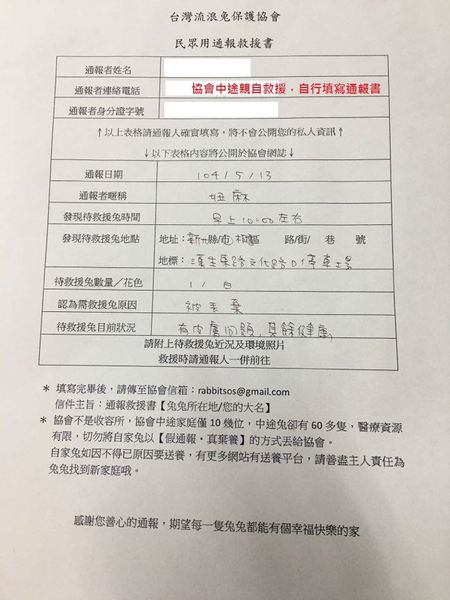 台灣流浪兔保護協會
民眾用通報救援書
通報者姓名
通報者連絡電話 協會中途親自救援，自行填寫通報書
通報者身分證字號
↑以上表格請通報人確實填寫，將不會公開您的私人資訊↑
↓以下表格內容將公開於協會網誌↓
通報日期 104/5/13
通報者暱稱 妞麻
發現待救援兔時間 早上10:00左右
發現待救援兔地點 地址：新北縣/市 板橋區 路/街/ 巷 號
地標：漢生東路文化路口停車場
待救援兔數量／花色 1/白
認為需救援兔原因 被丟棄
待救援兔目前狀況 有皮膚問題，其餘健康
請附上待救援兔近況及環境照片
救援時請通報人一併前往
* 填寫完畢後，請傳至協會信箱：rabbitsos@gmail.com
信件主旨：通報救援書【兔兔所在地/您的大名】
* 協會不是收容所，協會中途家庭僅 10 幾位，中途兔卻有 60 多隻，醫療資源
有限，切勿將自家兔以【假通報・真棄養】的方式丟給協會。
自家兔如因不得已原因要送養，有更多網站有送養平台，請善盡主人責任為
兔兔找到新家庭哦。
感謝您善心的通報，期望每一隻兔兔都能有個幸福快樂的家